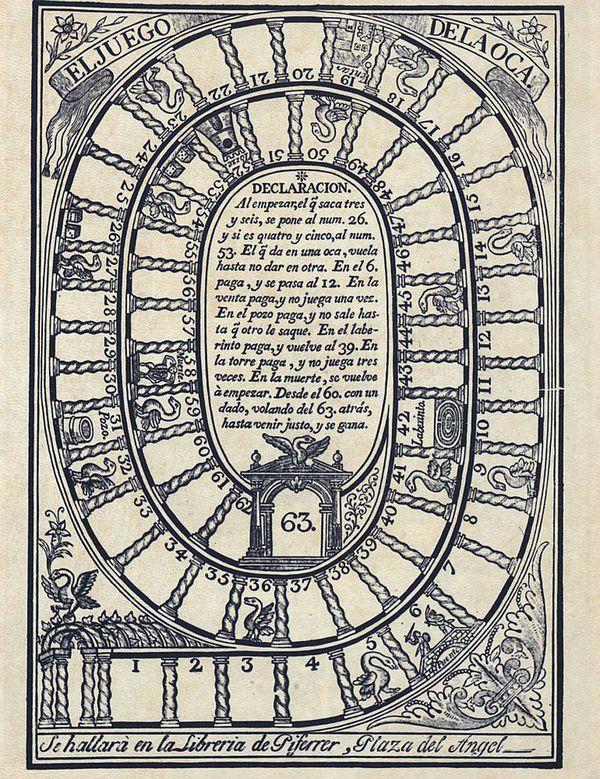 EL JUEGO DE LA OCA.
1
2
3
4
5
6
Puente
7
8
9
10
11
12
13
14
15
16
17
18
19
20
21
22
23
24
25
26
27
28
29
30
31
Pozo.
32
33
34
35
36
37
38
39
40
41
42
Laberinto
43
44
45
46
47
48
49
50
51
52
53
54
55
56
57
58
59
60
63.
DECLARACION.
Al empezar, el q̃ saca tres
y seis, se pone al num. 26.
y si es quatro y cinco, al num.
53. El q̃ da en una oca, vuela
hasta no dar en otra. En el 6.
paga, y se pasa al 12. En la
venta paga, y no juega una vez.
En el pozo paga, y no sale has-
ta q̃ otro le saque. En el labe-
rinto paga, y vuelve al 39. En
la torre paga, y no juega tres
veces. En la muerte, se vuelve
à empezar. Desde el 60. con un
dado, volando del 63. atrás,
hasta venir justo, y se gana.
Se hallarà en la Libreria de Piferrer, Plaza del Angel